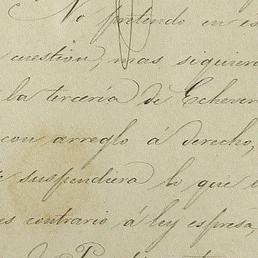 No pretendo en es
cuestion, mas siquiera
la tercería de Echever
con arreglo á derecho,
suspendiera lo que
es contrario á ley espresa,